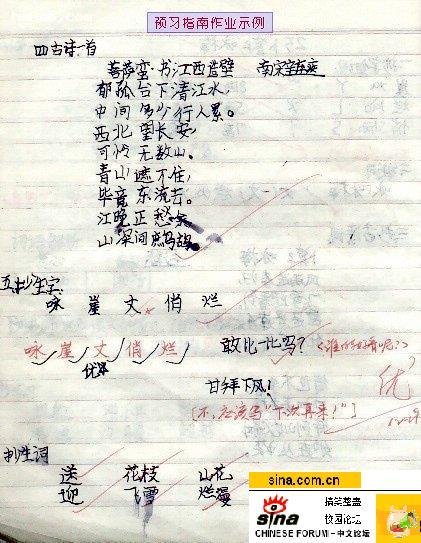 预习指南作业示例
四古诗一首
菩萨蛮·书江西造壁 南宋辛弃疾
郁孤台下清江水,
中间多少行人累。
西北望长安,
可怜无数山。
青山遮不住,
毕竟东流去。
江晚正愁余
山深闻鹧鸪
五.抄生字
咏 崖 丈 俏 烂
咏 崖 丈 俏 烂 敢比一比吗? <谁的好看呢?>
优
甘拜下风!
优
[不,应该写"下次再来!"]
抄生词
送 花枝 山花
迎 飞雪 烂漫
sina.com.cn
sina
搞笑整蛊
校园论坛
CHINESE FORUM - 中文论坛